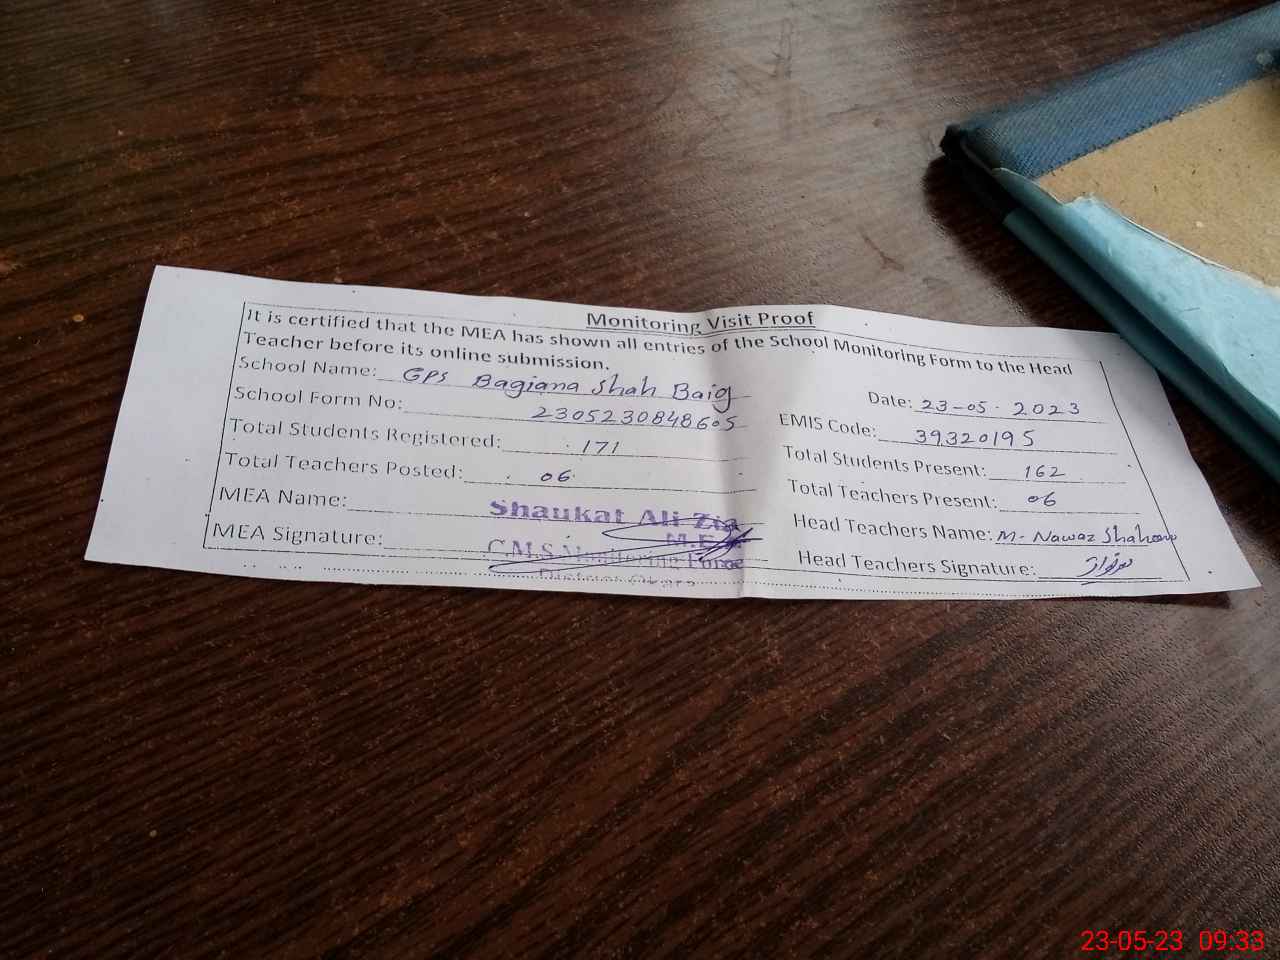 Monitoring Visit Proof
It is certified that the MEA has shown all entries of the School Monitoring Form to the Head
Teacher before its online submission.
School Name: GPS Bagiana Shah Baig
Date: 23-05-2023
School Form No: 2305230848605
EMIS Code: 39320195
Total Students Registered: 171
Total Students Present: 162
Total Teachers Posted: 06
Total Teachers Present: 06
MEA Name: Shaukat Ali Zia
M.E.A
Head Teachers Name: M. Nawaz Shaheen
MEA Signature: C.M.S Monitoring Force
District Okara
Head Teachers Signature:
23-05-23 09:33